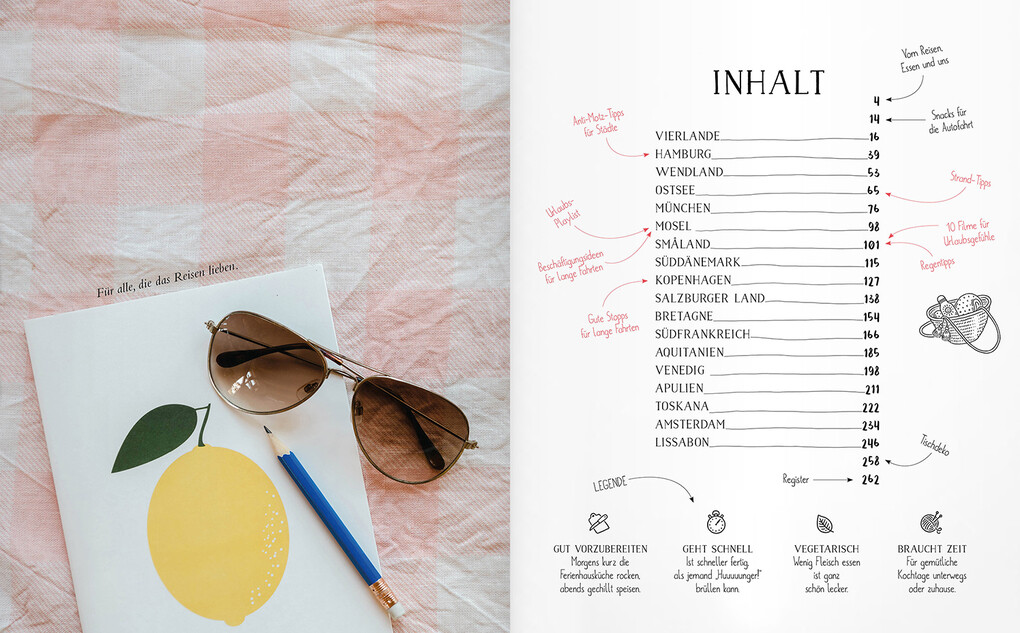 Für alle, die das Reisen lieben.
INHALT
Vom Reisen,
Essen und uns
4
14
Snacks für
die Autofahrt
VIERLANDE 16
Anti-Motz-Tipps
für Städte
HAMBURG 39
WENDLAND 53
OSTSEE 65
Strand-Tipps
MÜNCHEN 76
Urlaubs-
Playlist
MOSEL 98
10 Filme für
Urlaubsgefühle
SMÅLAND 101
Beschäftigungsideen
für lange Fahrten
Regentipps
SÜDDÄNEMARK 115
KOPENHAGEN 127
Gute Stopps
für lange Fahrten
SALZBURGER LAND 138
BRETAGNE 154
SÜDFRANKREICH 166
AQUITANIEN 185
VENEDIG 198
APULIEN 211
TOSKANA 222
AMSTERDAM 234
LISSABON 246
258
Tischdeko
Register 262
LEGENDE
GUT VORZUBEREITEN
Morgens kurz die
Ferienhausküche rocken,
abends gechillt speisen.
GEHT SCHNELL
Ist schneller fertig,
als jemand „Huuuuunger!"
brüllen kann.
VEGETARISCH
Wenig Fleisch essen
ist ganz
schön lecker.
BRAUCHT ZEIT
Für gemütliche
Kochtage unterwegs
oder zuhause.